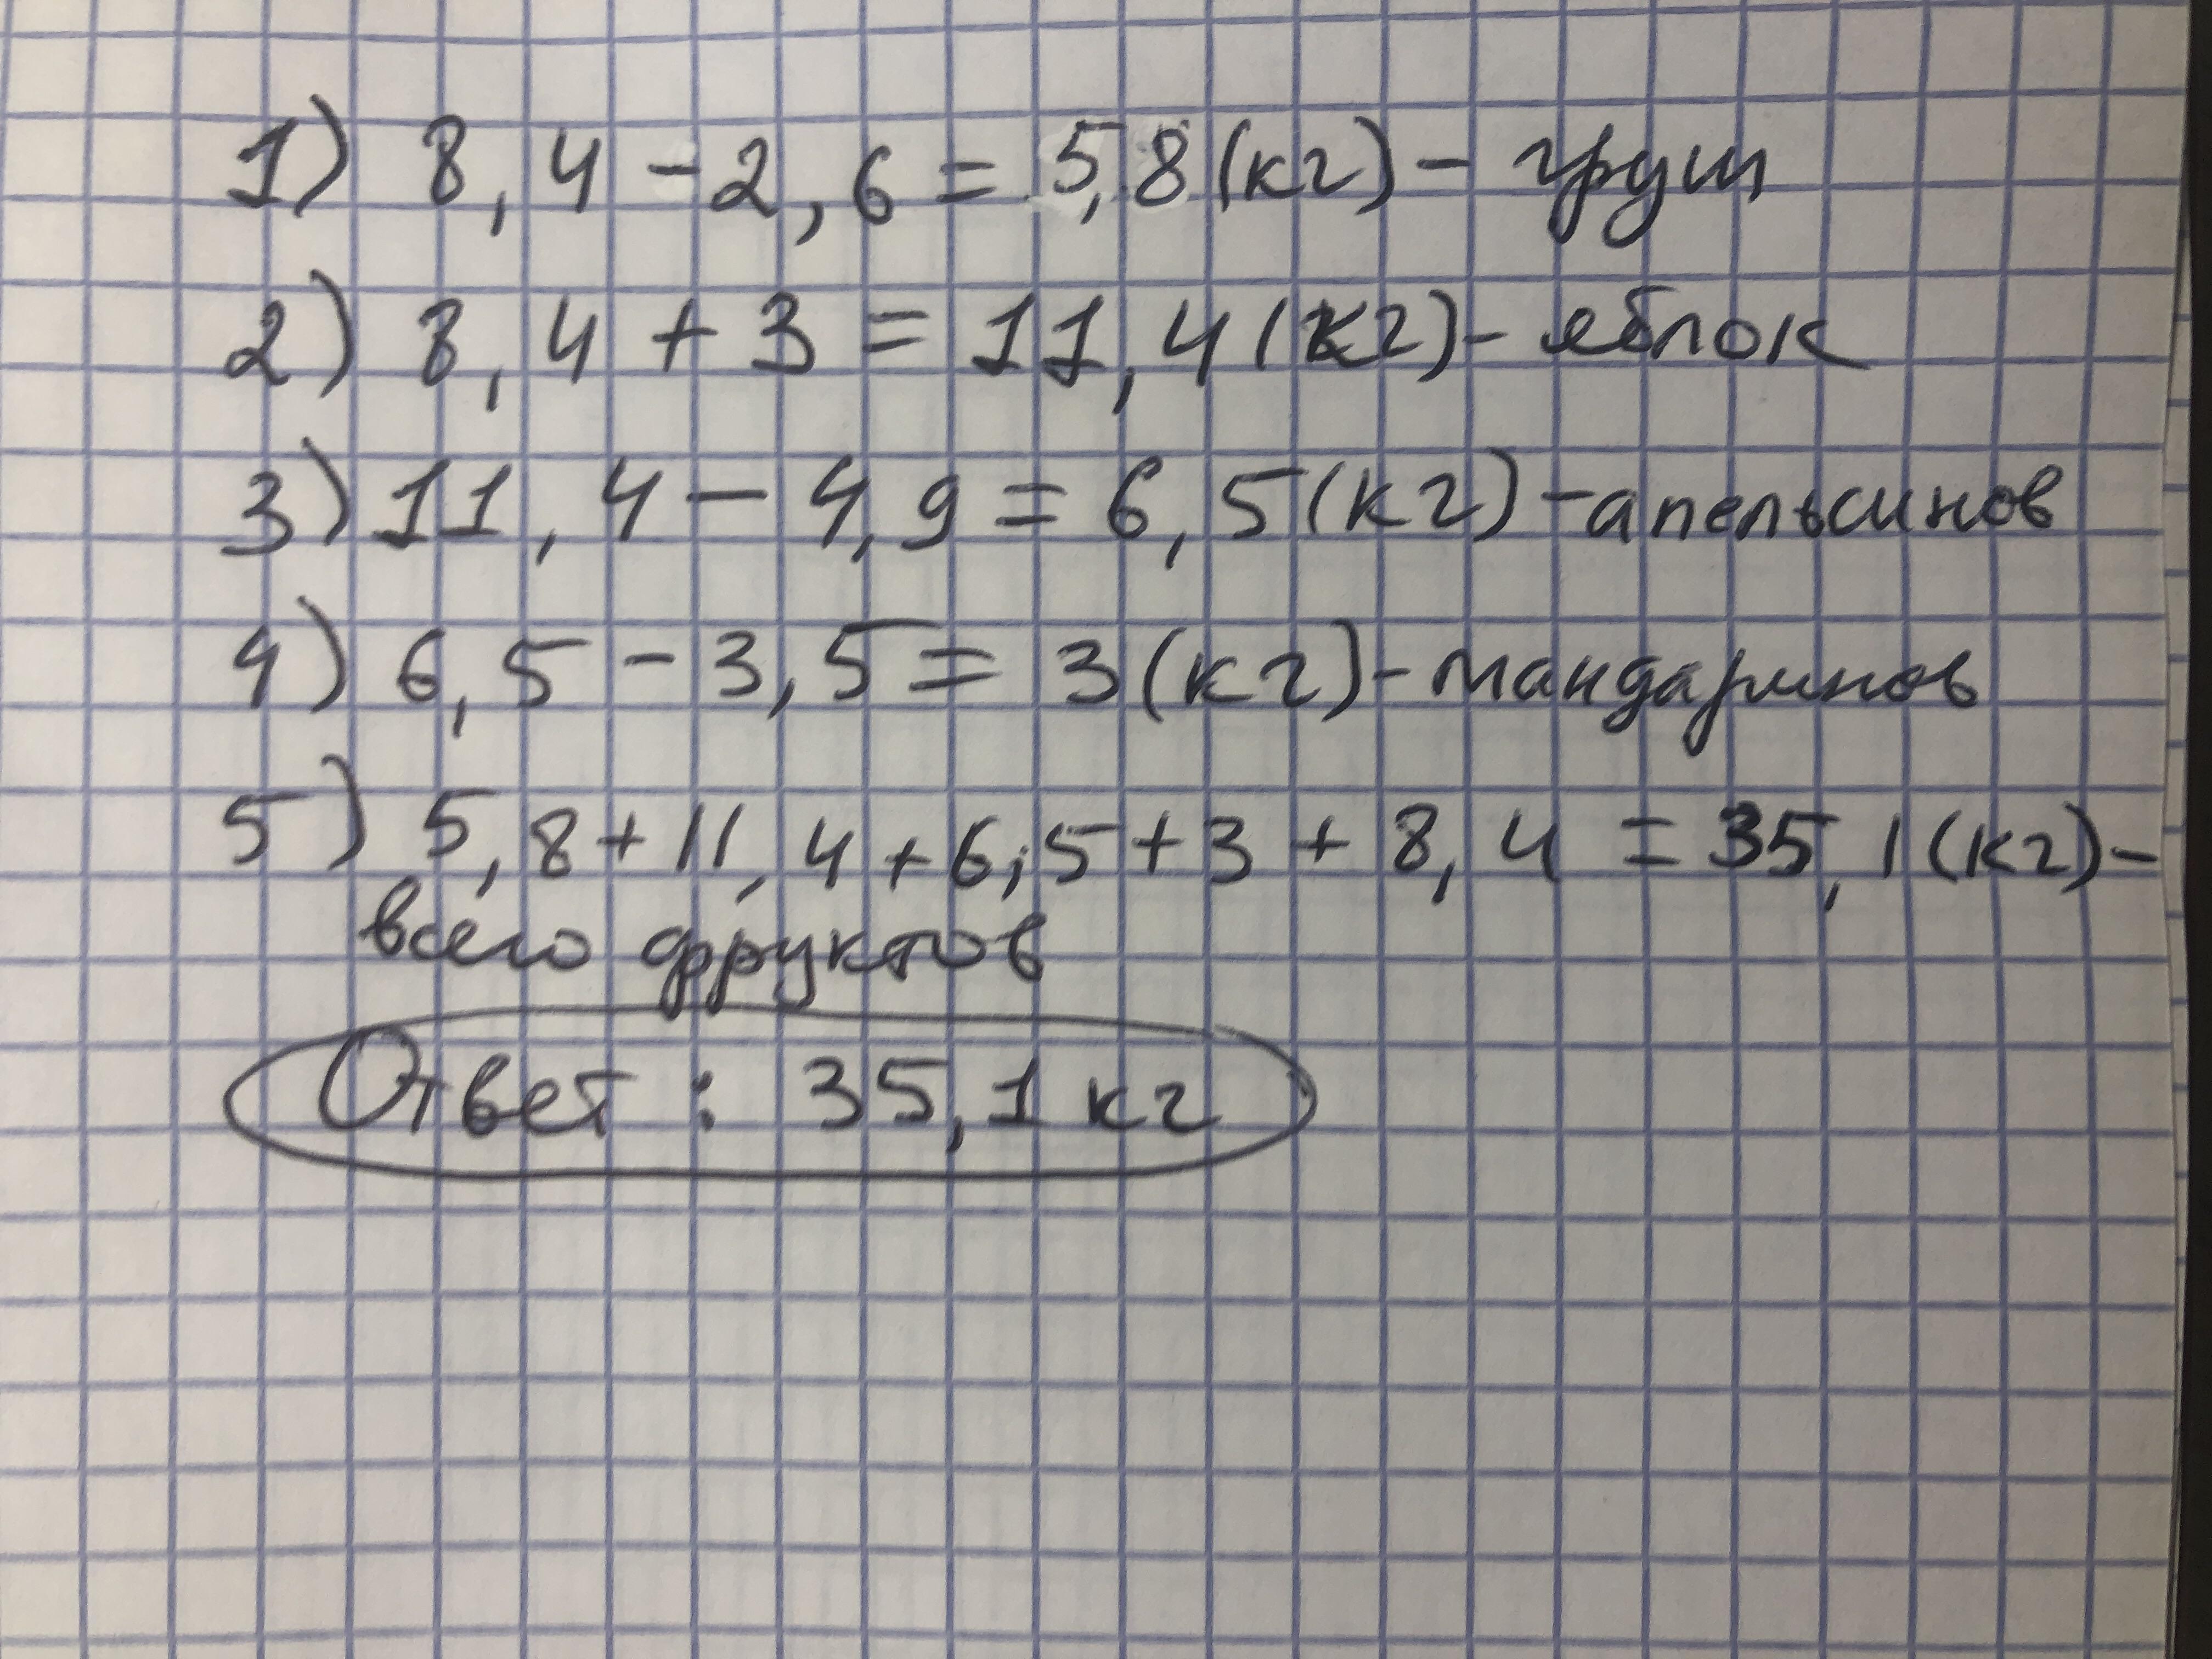 1) 8,4 - 2,6 = 5,8 (кг) - груш
2) 8,4 + 3 = 11,4 (кг) - яблок
3) 11,4 - 4,9 = 6,5 (кг) - апельсинов
4) 6,5 - 3,5 = 3 (кг) - мандаринов
5) 5,8 + 11,4 + 6,5 + 3 + 8,4 = 35,1 (кг) -
всего фруктов
Ответ : 35,1 кг